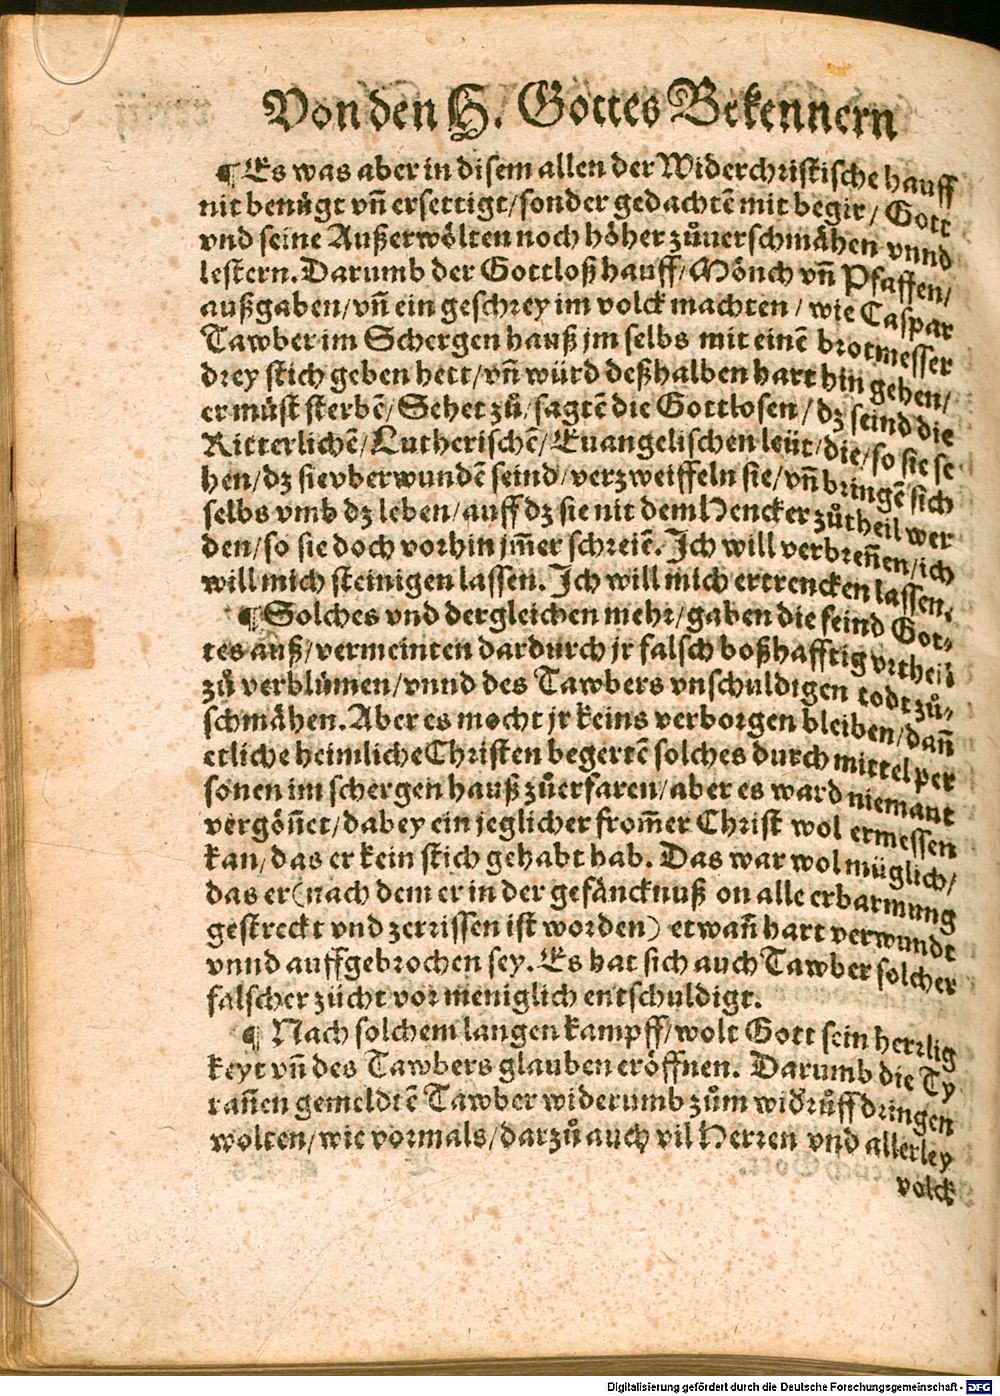 Von den H. Gottes Bekennern
¶ Es was aber in disem allen der Widerchristische hauff
nit benügt vñ ersettigt/ sonder gedachtẽ mit begir/ Gott
vnd seine Außerwölten noch höher zůuerschmähen vnnd
lestern. Darumb der Gottloß hauff/ Mönch vñ Pfaffen/
außgaben/ vñ ein geschrey im volck machten/ wie Caspar
Tawber im Schergen hauß jm selbs mit einẽ brotmesser
drey stich geben hett/ vñ würd deßhalben hart hin gehen/
er müst sterbẽ/ Sehet zů/ sagtẽ die Gottlosen/ dz seind die
Ritterlichẽ/ Lutherischẽ/ Euangelischen leüt/ die/ so sie se
hen/ dz sie vberwundẽ seind/ verzweiffeln sie/ vñ bringẽ sich
selbs vmb dz leben/ auff dz sie nit dem Hencker zůtheil wer
den/ so sie doch vorhin jm̃er schreiẽ. Ich will verbreñen/ ich
will mich steinigen lassen. Ich will mich ertrencken lassen.
¶ Solches vnd dergleichen mehr/ gaben die feind Got-
tes auß/ vermeinten dardurch jr falsch boßhafftig vrtheil
zů verblümen/ vnnd des Tawbers vnschuldigen todt zů-
schmähen. Aber es mocht jr keins verborgen bleiben/ dañ
etliche heimliche Christen begertẽ solches durch mittel per
sonen im schergen hauß zůerfaren/ aber es ward niemant
vergöñet/ dabey ein jeglicher from̃er Christ wol ermessen
kan/ das er kein stich gehabt hab. Das war wol müglich/
das er (nach dem er in der gefäncknuß on alle erbarmung
gestreckt vnd zerrissen ist worden) etwañ hart verwundt
vnnd auffgebrochen sey. Es hat sich auch Tawber solcher
falscher zücht vor meniglich entschuldigt.
¶ Nach solchem langen kampff/ wolt Gott sein herrlig
keyt vñ des Tawbers glauben eröffnen. Darumb die Ty
rañen gemeldtẽ Tawber widerumb zům widrůff dringen
wolten/ wie vormals/ darzů auch vil Herren vnd allerley
volck
Digitalisierung gefördert durch die Deutsche Forschungsgemeinschaft - DFG